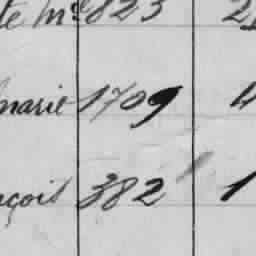 te M. 823 2
marie 1709 4
nçois 382 1